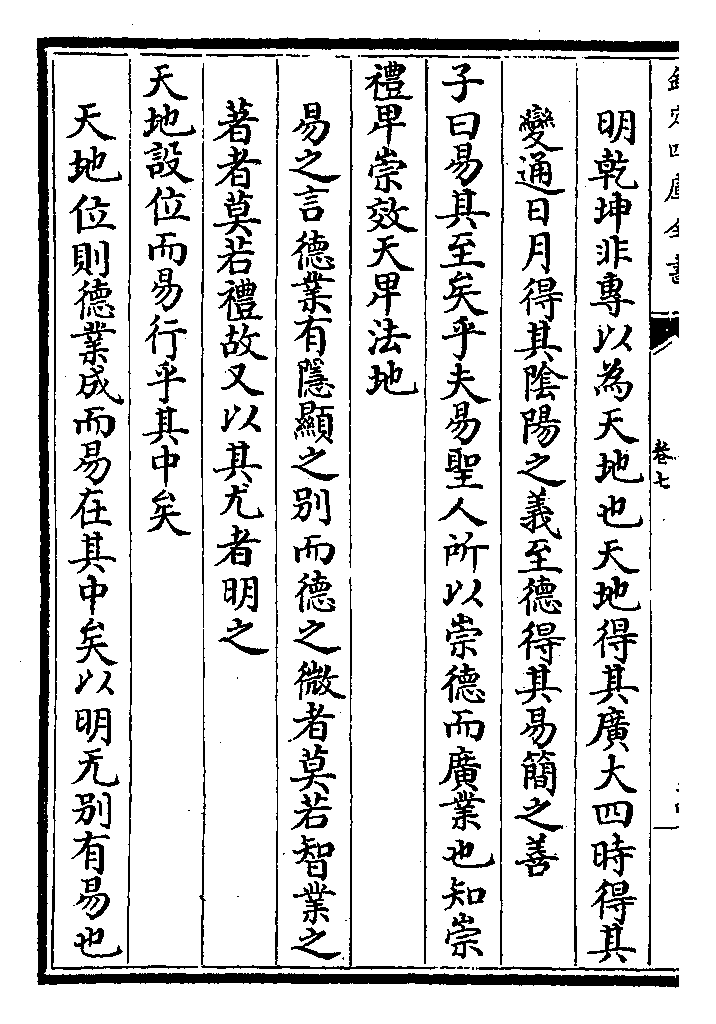 欽定四庫全書
卷七
明乾坤非專以為天地也天地得其廣大四時得其
變通日月得其陰陽之義至德得其易簡之善
子曰易其至矣乎夫易聖人所以崇德而廣業也知崇
禮卑崇效天卑法地
易之言德業有隱顯之别而德之微者莫若智業之
著者莫若禮故又以其尤者明之
天地設位而易行乎其中矣
天地位則德業成而易在其中矣以明无别有易也